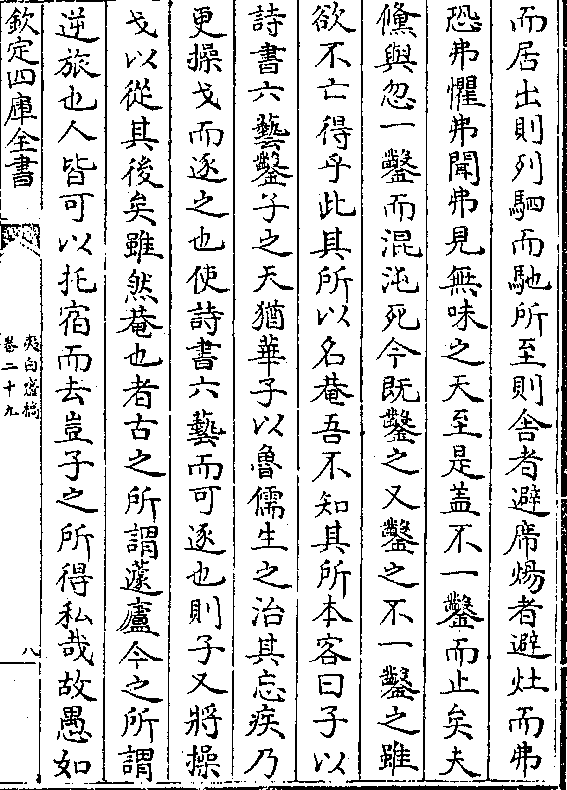 而居出則列駟而馳所至則舍者避席煬者避灶而弗
恐弗懼弗聞弗見無味之天至是盖不一鑿而止矣夫
儵與忽一鑿而混沌死今既鑿之又鑿之不一鑿之雖
欲不亡得乎此其所以名菴吾不知其所本客曰子以
詩書六藝鑿子之天猶華子以魯儒生之治其忘疾乃
更操戈而逐之也使詩書六藝而可逐也則子又將操
戈以從其後矣雖然菴也者古之所謂蘧廬今之所謂
逆旅也人皆可以托宿而去豈子之所得私哉故愚如
欽定四庫全書
夷白齋稿
卷二十九
八